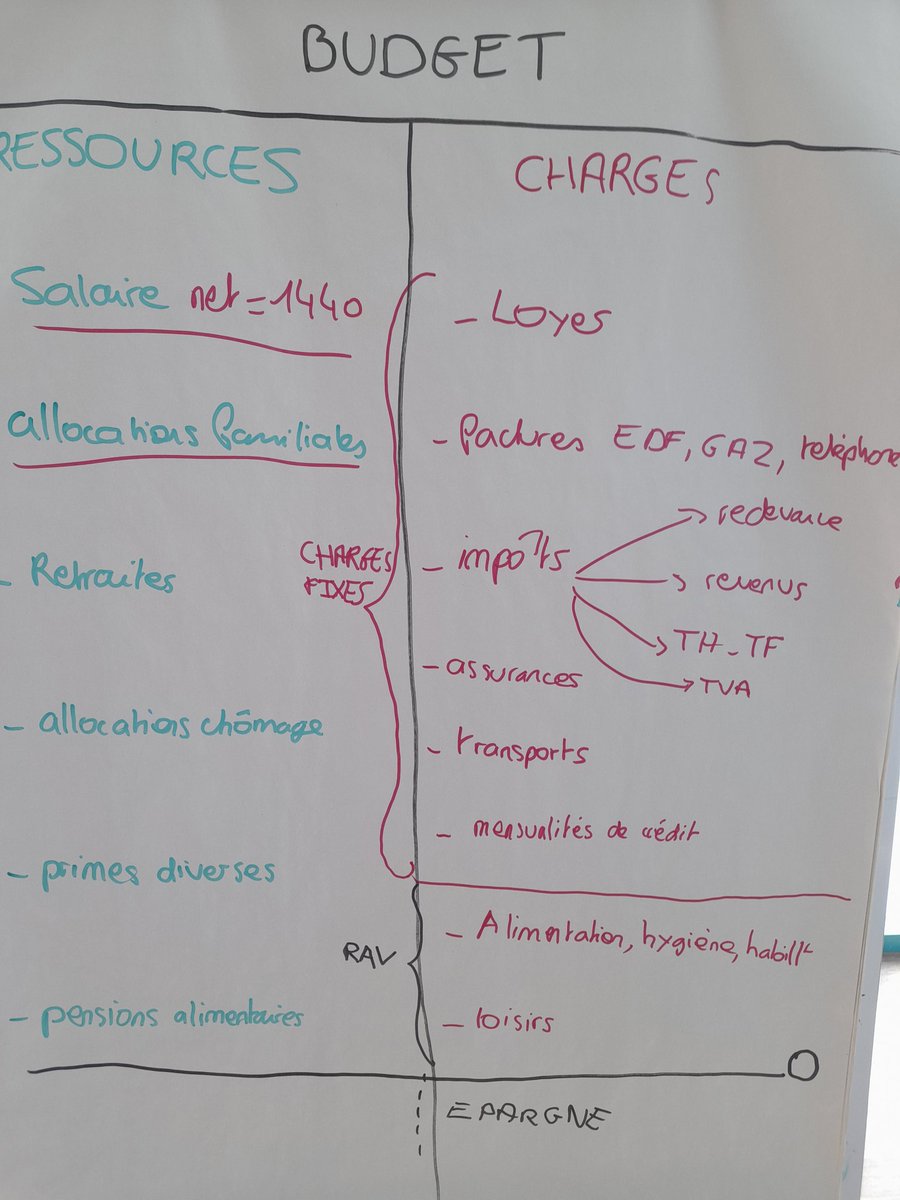 BUDGET
RESSOURCES
Salaire net = 1440
allocations familiales
- Retraites
- allocations chômage
- primes diverses
- pensions alimentaires
CHARGES
- Loyes
- factures EDF, GAZ, teléphone
- impôts
→ redevance
→ revenus
→ TH - TF
→ TVA
- assurances
- transports
- mensualités de crédit
CHARGES
FIXES
- Alimentation, hygiène, habillt
- loisirs
RAV
O
EPARGNE